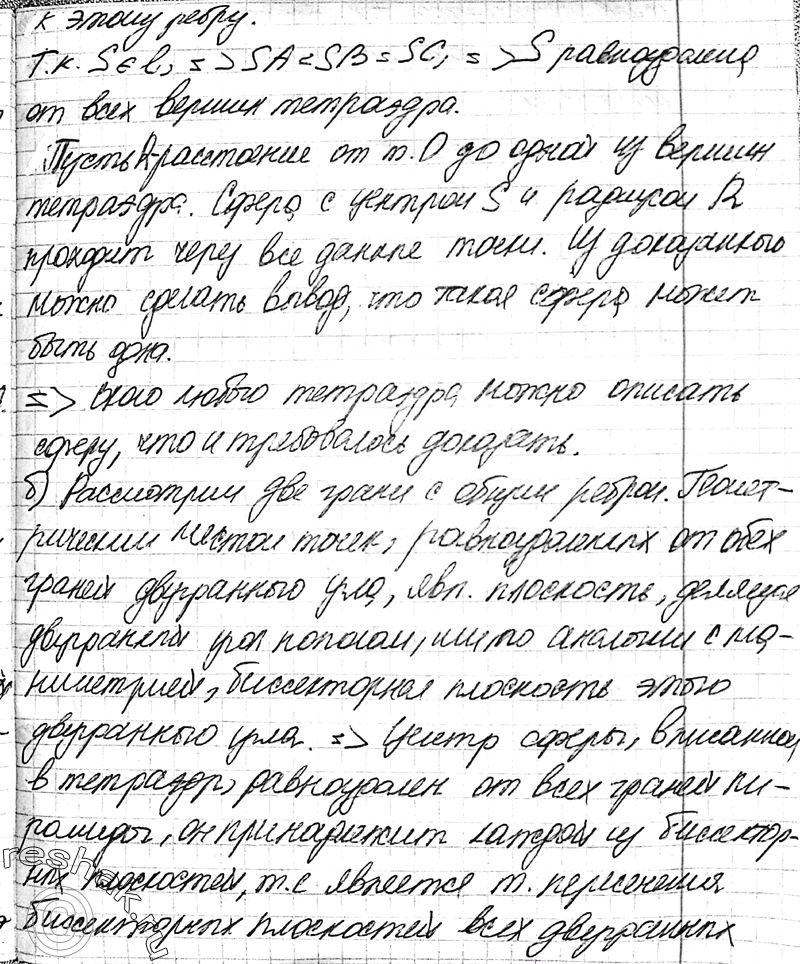 к этому ребру.
Т.к. S∈l, => SA=SB=SC, => S равноудалена
от всех вершин тетраэдра.
Пусть R-расстояние от т. О до одной из вершин
тетраэдра. Сфера с центром S и радиусом R
проходит через все данные точки. Из доказанного
можно сделать вывод, что такая сфера может
быть одна.
=> около любого тетраэдра можно описать
сферу, что и требовалось доказать.
б) Рассмотрим две грани с общим ребром. Геомет-
рическим местом точек, равноудаленных от обеих
граней двугранного угла, явл. плоскость, делящая
двугранный угол пополам, или по аналогии с пла-
ниметрией, биссекторная плоскость этого
двугранного угла. => Центр сферы, вписанной
в тетраэдр, равноудален от всех граней пи-
рамиды, он принадлежит каждой из биссектор-
ных плоскостей, т.е является т. пересечения
биссекторных плоскостей всех двугранных
reshak.ru